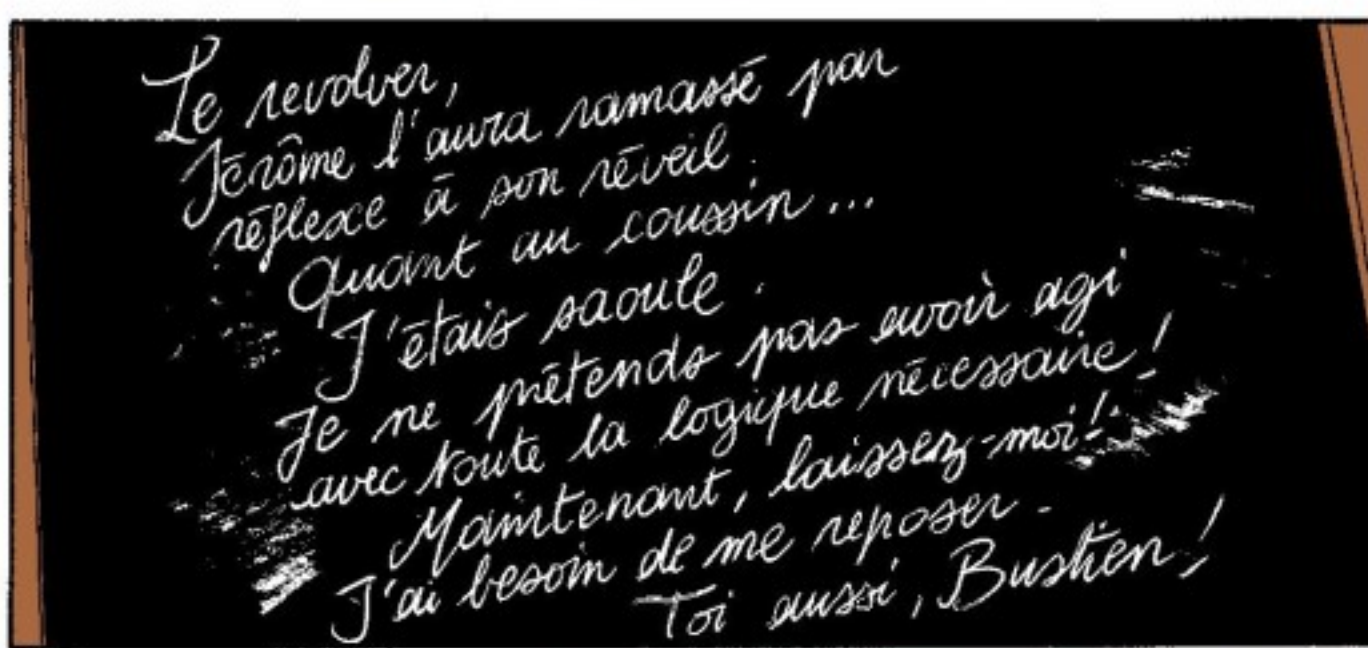 Le revolver,
Jérôme l'aura ramassé par
réflexe à son réveil.
Quant au coussin...
J'étais saoule.
Je ne prétends pas avoir agi
avec toute la logique nécessaire!
Maintenant, laissez-moi!
J'ai besoin de me reposer.
Toi aussi, Bustien!